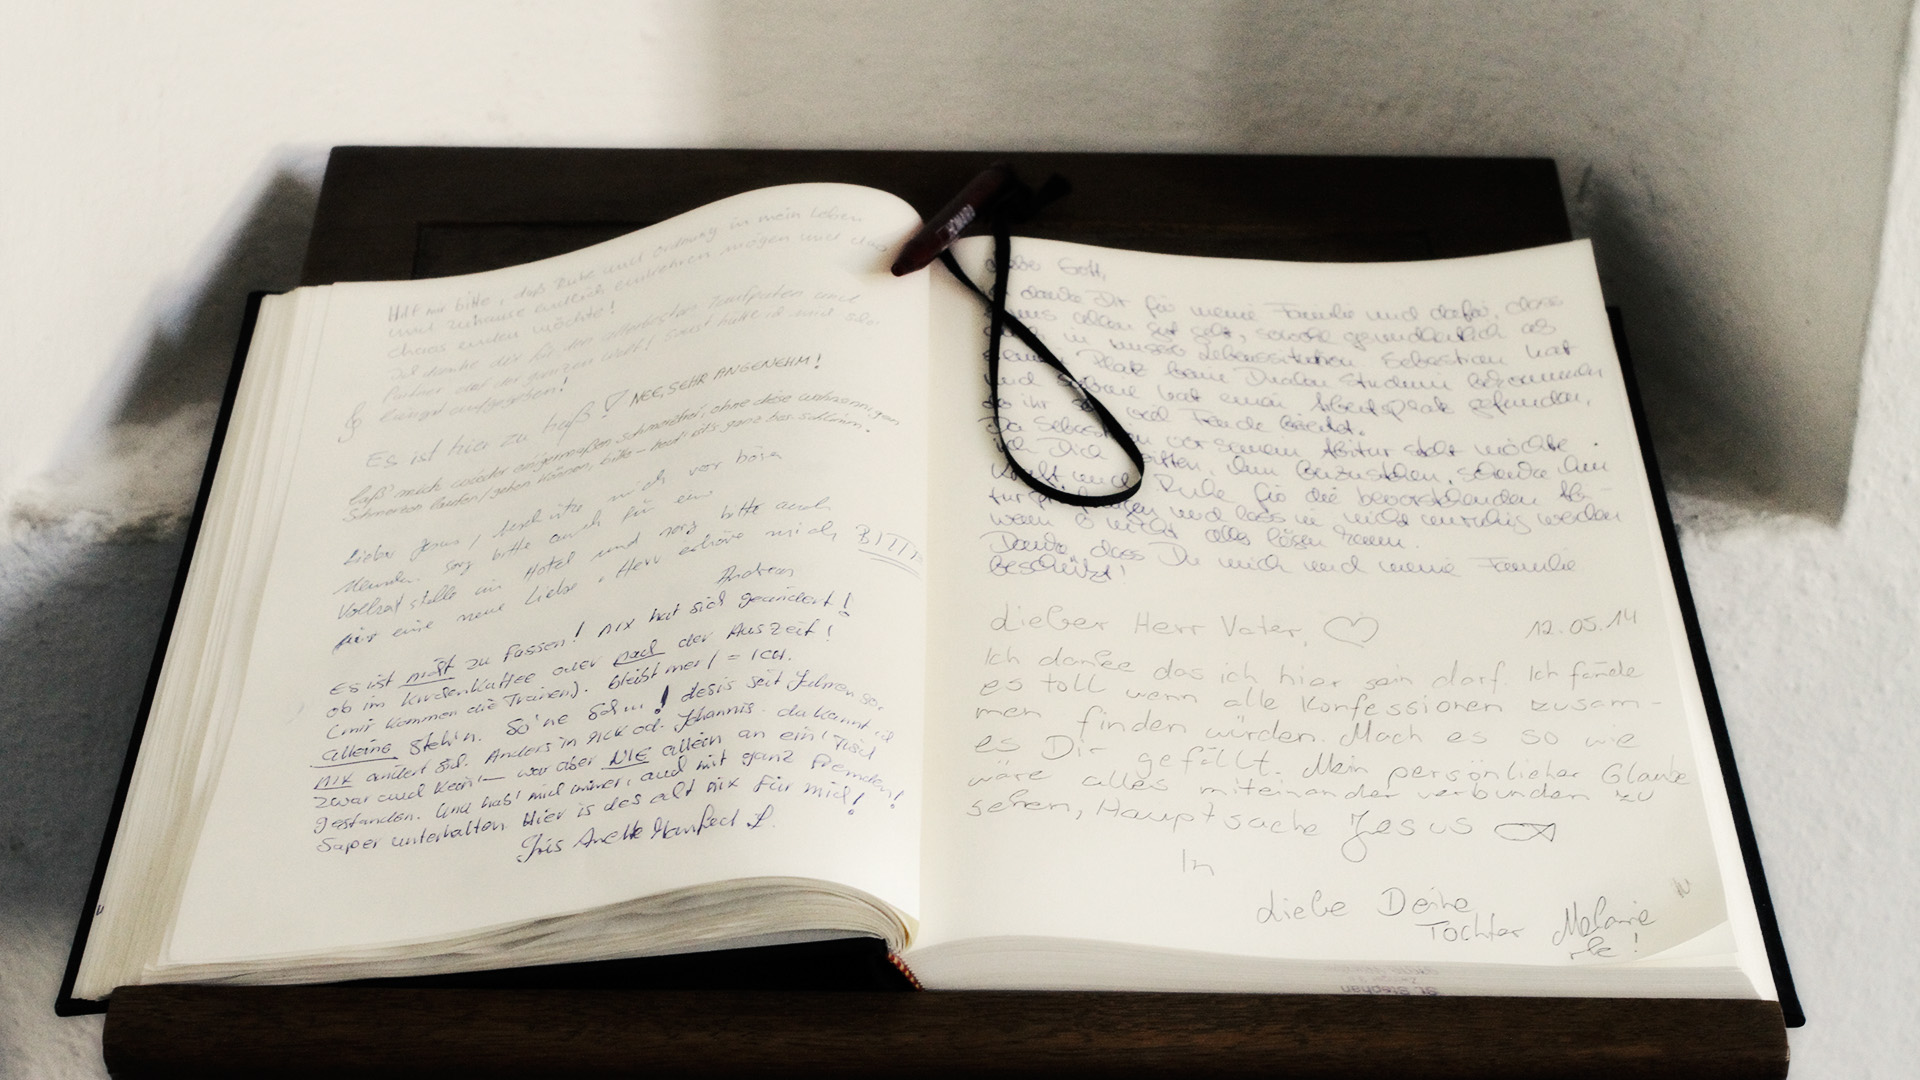 Hilf mir bitte, daß Ruhe und Ordnung in mein Leben
und Zuhause endlich einkehren mögen und das
Chaos enden möchte!
Ich danke dir für den allerbesten Taufpaten und
Partner auf der ganzen Welt! Sonst hätte ich
längst aufgegeben!
Es ist hier zu heiß! NEE, SEHR ANGENEHM!
laß' mich wieder einigermaßen schmerzfrei, ohne diese
Schmerzen laufen/gehen können, bitte - heut ist's ganz bes. schlimm!
Lieber Jesus, beschütze mich vor bösn
Menschn. Sorg bitte auch für eine
Vollzeitstelle im Hotel und sorg bitte auch
für eine neue Liebe. Herr erhöre mich BITTE
Andreas
Es ist nicht zu fassen! nix hat sich geändert!
ob im Kirchenkaffee oder nach der Auszeit!
(mir kommen die Tränen). bleibt mer / = ICH.
alleine steh'n. So'ne Schm! des is seit Jahren so.
nix ändert sich. Anders in NCK od. Johannis. da kannt ich
zwar auch kein' — war aber NIE allein an ein' Tisch
gestanden. Und hab' mich immer, auch mit ganz Fremden!
Super unterhalten. Hier is des alt nix für mich!
Iris Anette Manfred L.
Lieber Gott,
ich danke Dir für meine Familie und dafür, dass
es uns allen gut geht, sowohl gesundheitlich als
auch in unserer Lebenssituation. Sebastian hat
einen Platz beim Dualen Studium bekommen
und hat einen Arbeitsplatz gefunden,
der ihr viel Freude bereitet.
Da Sebastian vor seinem Abitur steht möchte
ich Dich bitten, ihm beizustehen, schenke ihm
Kraft und Ruhe für die bevorstehenden Abi-
turprüfungen und lass ihn nicht unruhig werden
wenn er nicht alles lösen kann.
Danke, dass Du mich und meine Familie
beschützt!
Lieber Herr Vater, ♡ 12.05.14
Ich danke das ich hier sein darf. Ich fände
es toll wenn alle Konfessionen zusam-
men finden würden. Mach es so wie
es Dir gefällt. Mein persönlicher Glaube
wäre alles miteinander verbunden zu
sehen, Hauptsache Jesus
In
Liebe Deine
Tochter Melanie
St. Stephan